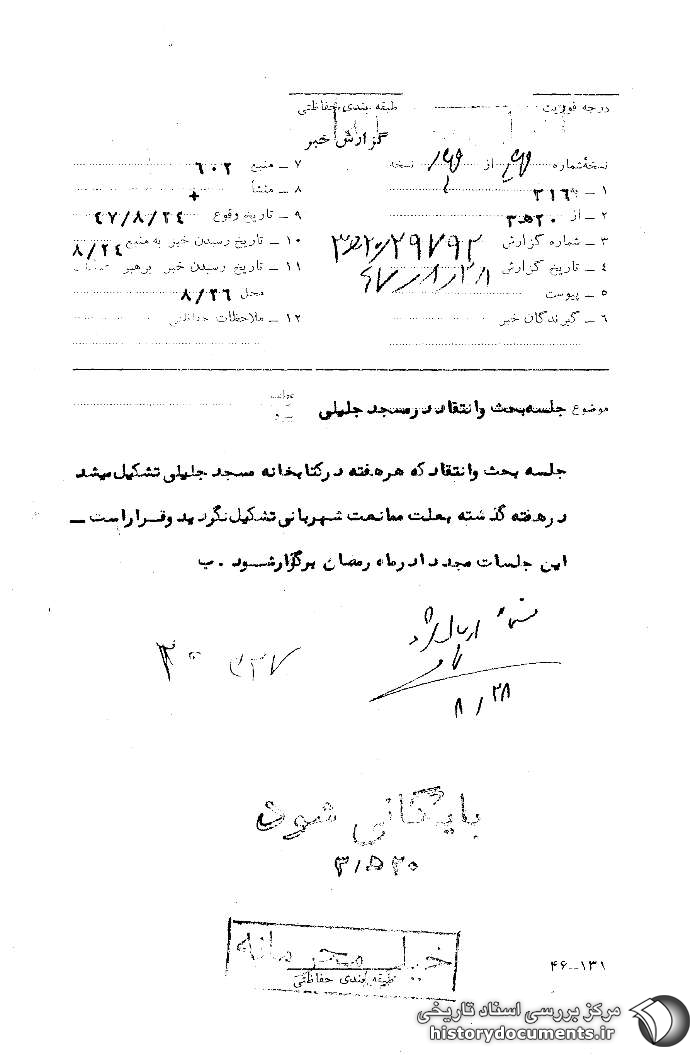 درجه فوریت
طبقه بندی حفاظتی
گزارش خبر
نسخهٔ شماره از نسخه
۱ ـ به ۳۱۶
۲ ـ از ۲۰ ه‍ ۳
۳ ـ شماره گزارش ۲۹۷۹۲/۲۰ ه‍ ۳
۴ ـ تاریخ گزارش ۴۷/۸/۲۸
۵ ـ پیوست
۶ ـ گیرندگان خبر
۷ ـ منبع ۶۰۲
۸ ـ منشأ +
۹ ـ تاریخ وقوع ۴۷/۸/۲۴
۱۰ ـ تاریخ رسیدن خبر به منبع ۸/۲۴
۱۱ ـ تاریخ رسیدن خبر برهبر عملیات
محل ۸/۲۶
۱۲ ـ ملاحظات حفاظتی
موضوع جلسه بحث وانتقاد درمسجد جلیلی
جلسه بحث وانتقاد که هرهفته درکتابخانه مسجد جلیلی تشکیل میشد
درهفته گذشته بعلت ممانعت شهربانی تشکیل نگردید وقراراست ـ
این جلسات مجددا درماه رمضان برگزارشود . ب
۸/۲۸
بایگانی شود
۳۲۰ ه‍
خیلی محرمانه
طبقه بندی حفاظتی
۴۶-۱۳۱
مرکز بررسی اسناد تاریخی
historydocuments.ir